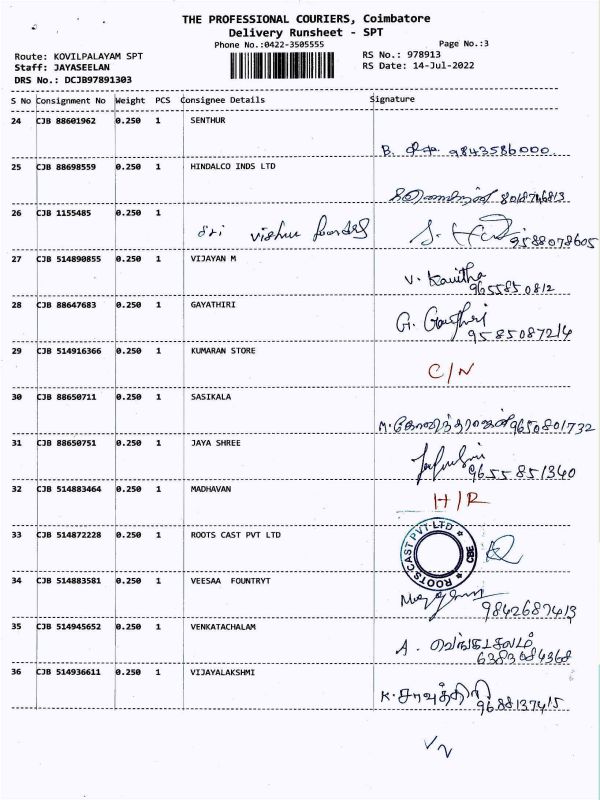 THE PROFESSIONAL COURIERS, Coimbatore
Delivery Runsheet - SPT
Phone No.:0422-3505555 Page No.:3
Route: KOVILPALAYAM SPT RS No.: 978913
Staff: JAYASEELAN RS Date: 14-Jul-2022
DRS No.: DCJB97891303
S No Consignment No Weight PCS Consignee Details Signature
24 CJB 88601962 0.250 1 SENTHUR
B. 9843586000.
25 CJB 88698559 0.250 1 HINDALCO INDS LTD
26 CJB 1155485 0.250 1
Sri Vishnu
S. 9588078605
27 CJB 514890855 0.250 1 VIJAYAN M
V. Kavitha
9655850812
28 CJB 88647683 0.250 1 GAYATHIRI
G. Gayathiri
9585087214
29 CJB 514916366 0.250 1 KUMARAN STORE
C/N
30 CJB 88650711 0.250 1 SASIKALA
M. கோவிந்தராஜன் 9650801732
31 CJB 88650751 0.250 1 JAYA SHREE
9655851340
32 CJB 514883464 0.250 1 MADHAVAN
H/R
33 CJB 514872228 0.250 1 ROOTS CAST PVT LTD
ROOTS CAST PVT LTD * CBE *
34 CJB 514883581 0.250 1 VEESAA FOUNTRYT
9842687413
35 CJB 514945652 0.250 1 VENKATACHALAM
A. வெங்கடாசலம்
6383684368
36 CJB 514936611 0.250 1 VIJAYALAKSHMI
K. சாவித்திரி
9688137415